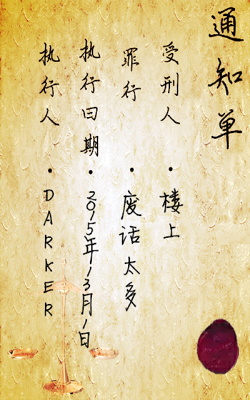 通知单
受刑人·楼上
罪行·废话太多
执行曰期·2015年13月1日
执行人·DARKER